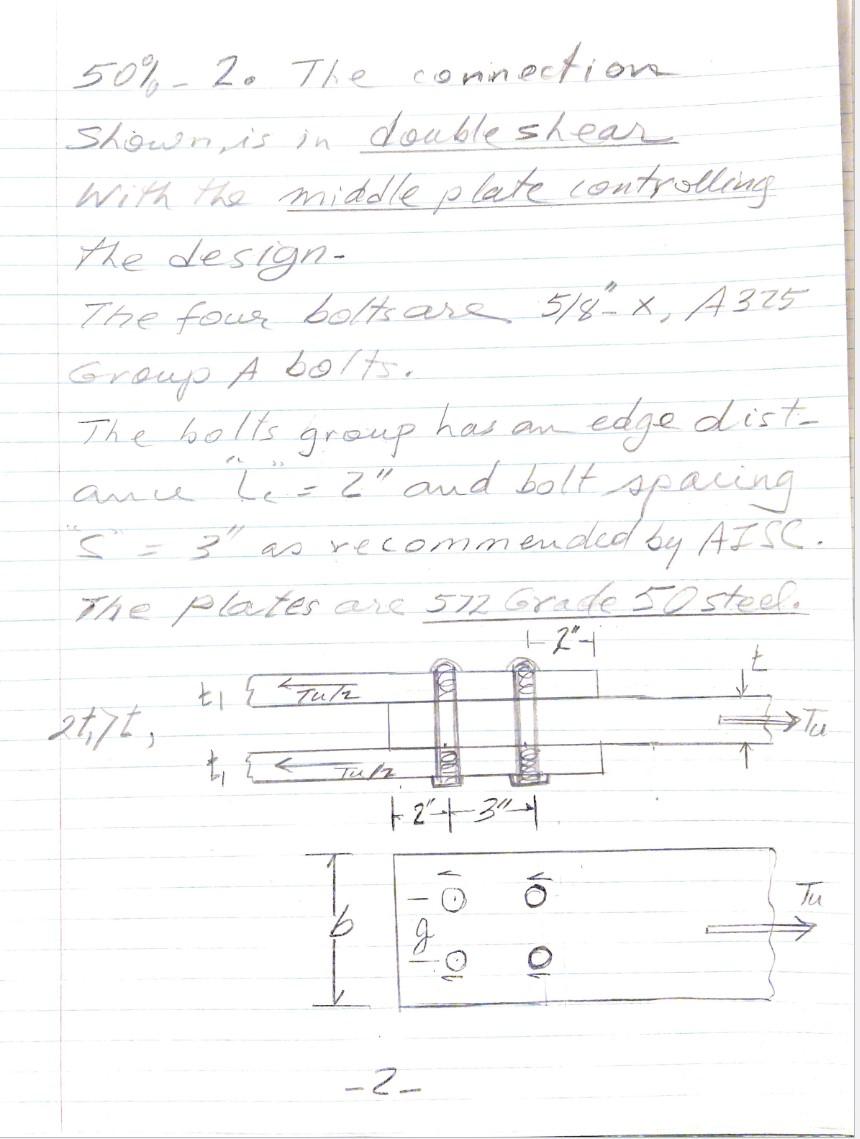 50% - 2. The connection
Shown, is in double shear
With the middle plate controlling
the design -
The four bolts are 5/8" - X, A325
Group A bolts.
The bolts group has an edge dist-
ance "Le" = 2" and bolt spacing
"S" = 3" as recommended by AISC.
The plates are 572 Grade 50 steel.
2"
t
t1
Tu/2
2t1>t,
Tu
t1
Tu/2
2" 3"
b
g
Tu
-2-